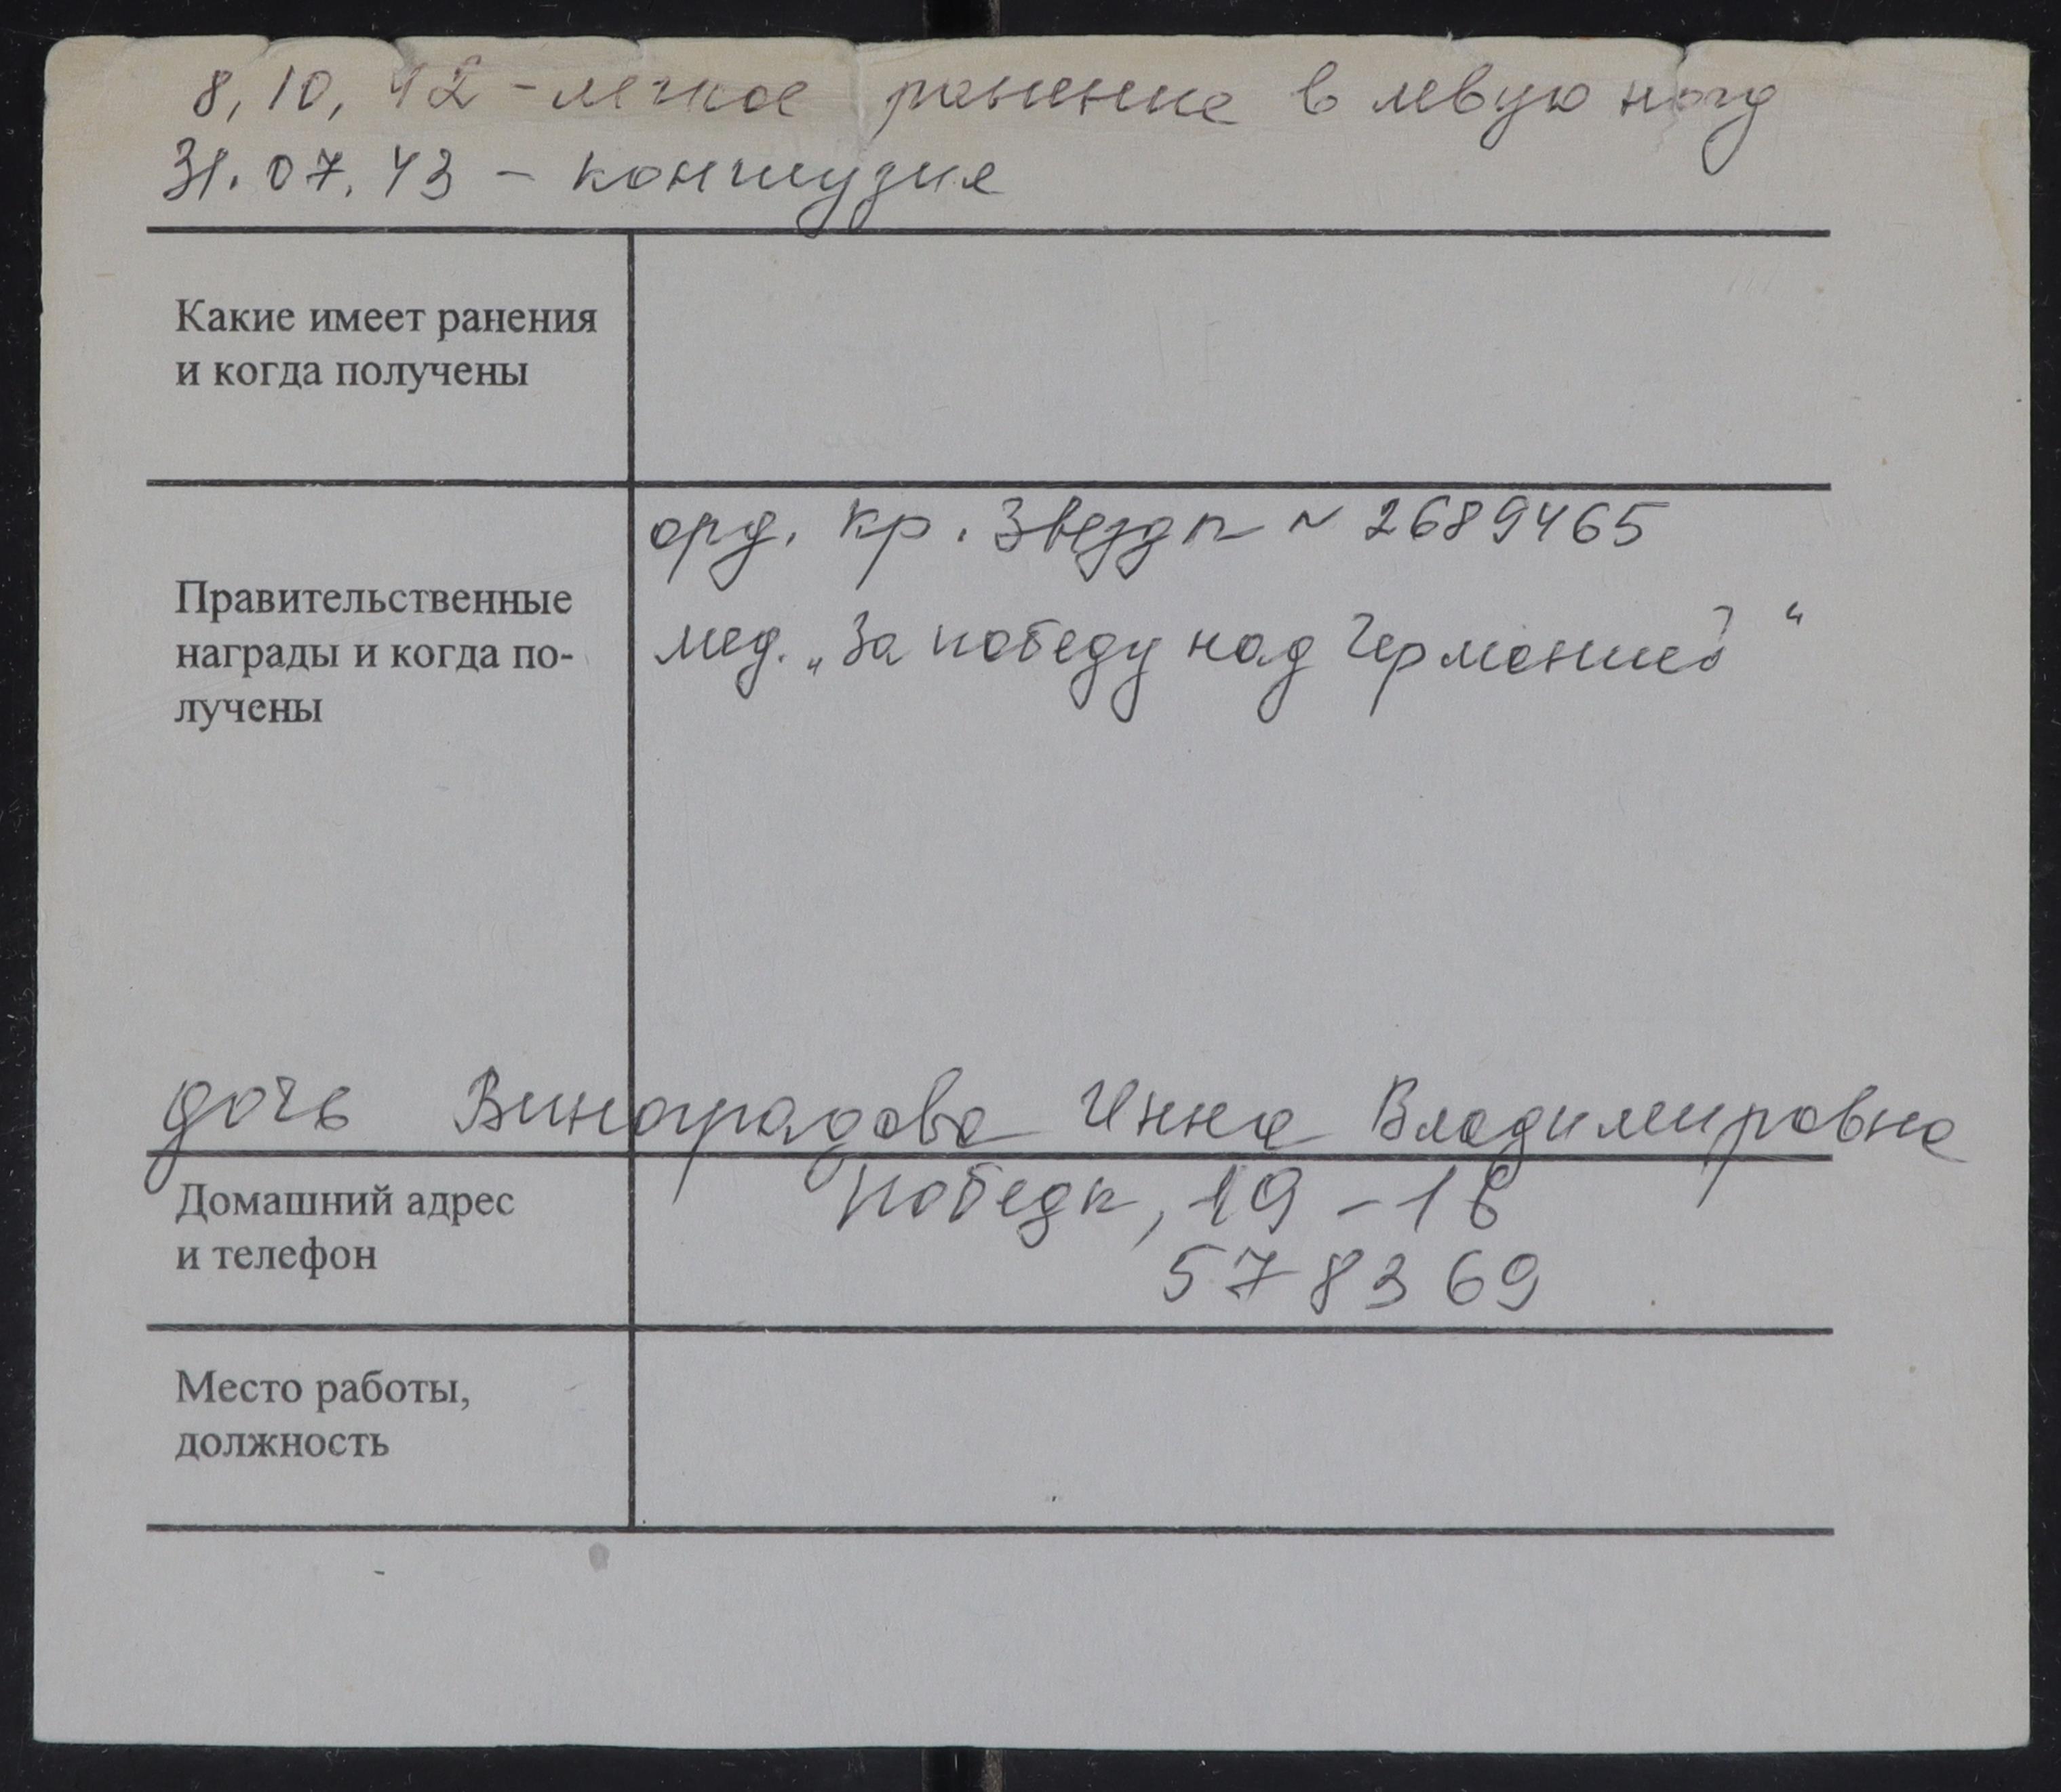 8, 10, 42 - легкое ранение в левую ногу
31.07.43 - контузия
Какие имеет ранения
и когда получены
орд. Кр. Звезды № 2689465
Правительственные
награды и когда по-
лучены
мед. „За победу над Германией“
дочь Виноградова Инна Владимировна
Домашний адрес
и телефон
Победы, 19 - 16
578369
Место работы,
должность